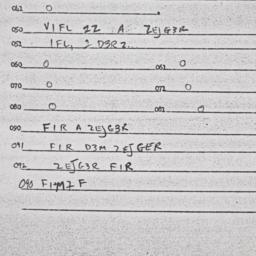 042 O
050 VIFL 22 A ZEJG3R
052 IFL, 2 D3R2
060 O 061 O
070 O 072 O
080 O 082 O
090 FIR A ZEJG3R
091 FIR D3M ZEJGER
092 ZEJG3R FIR